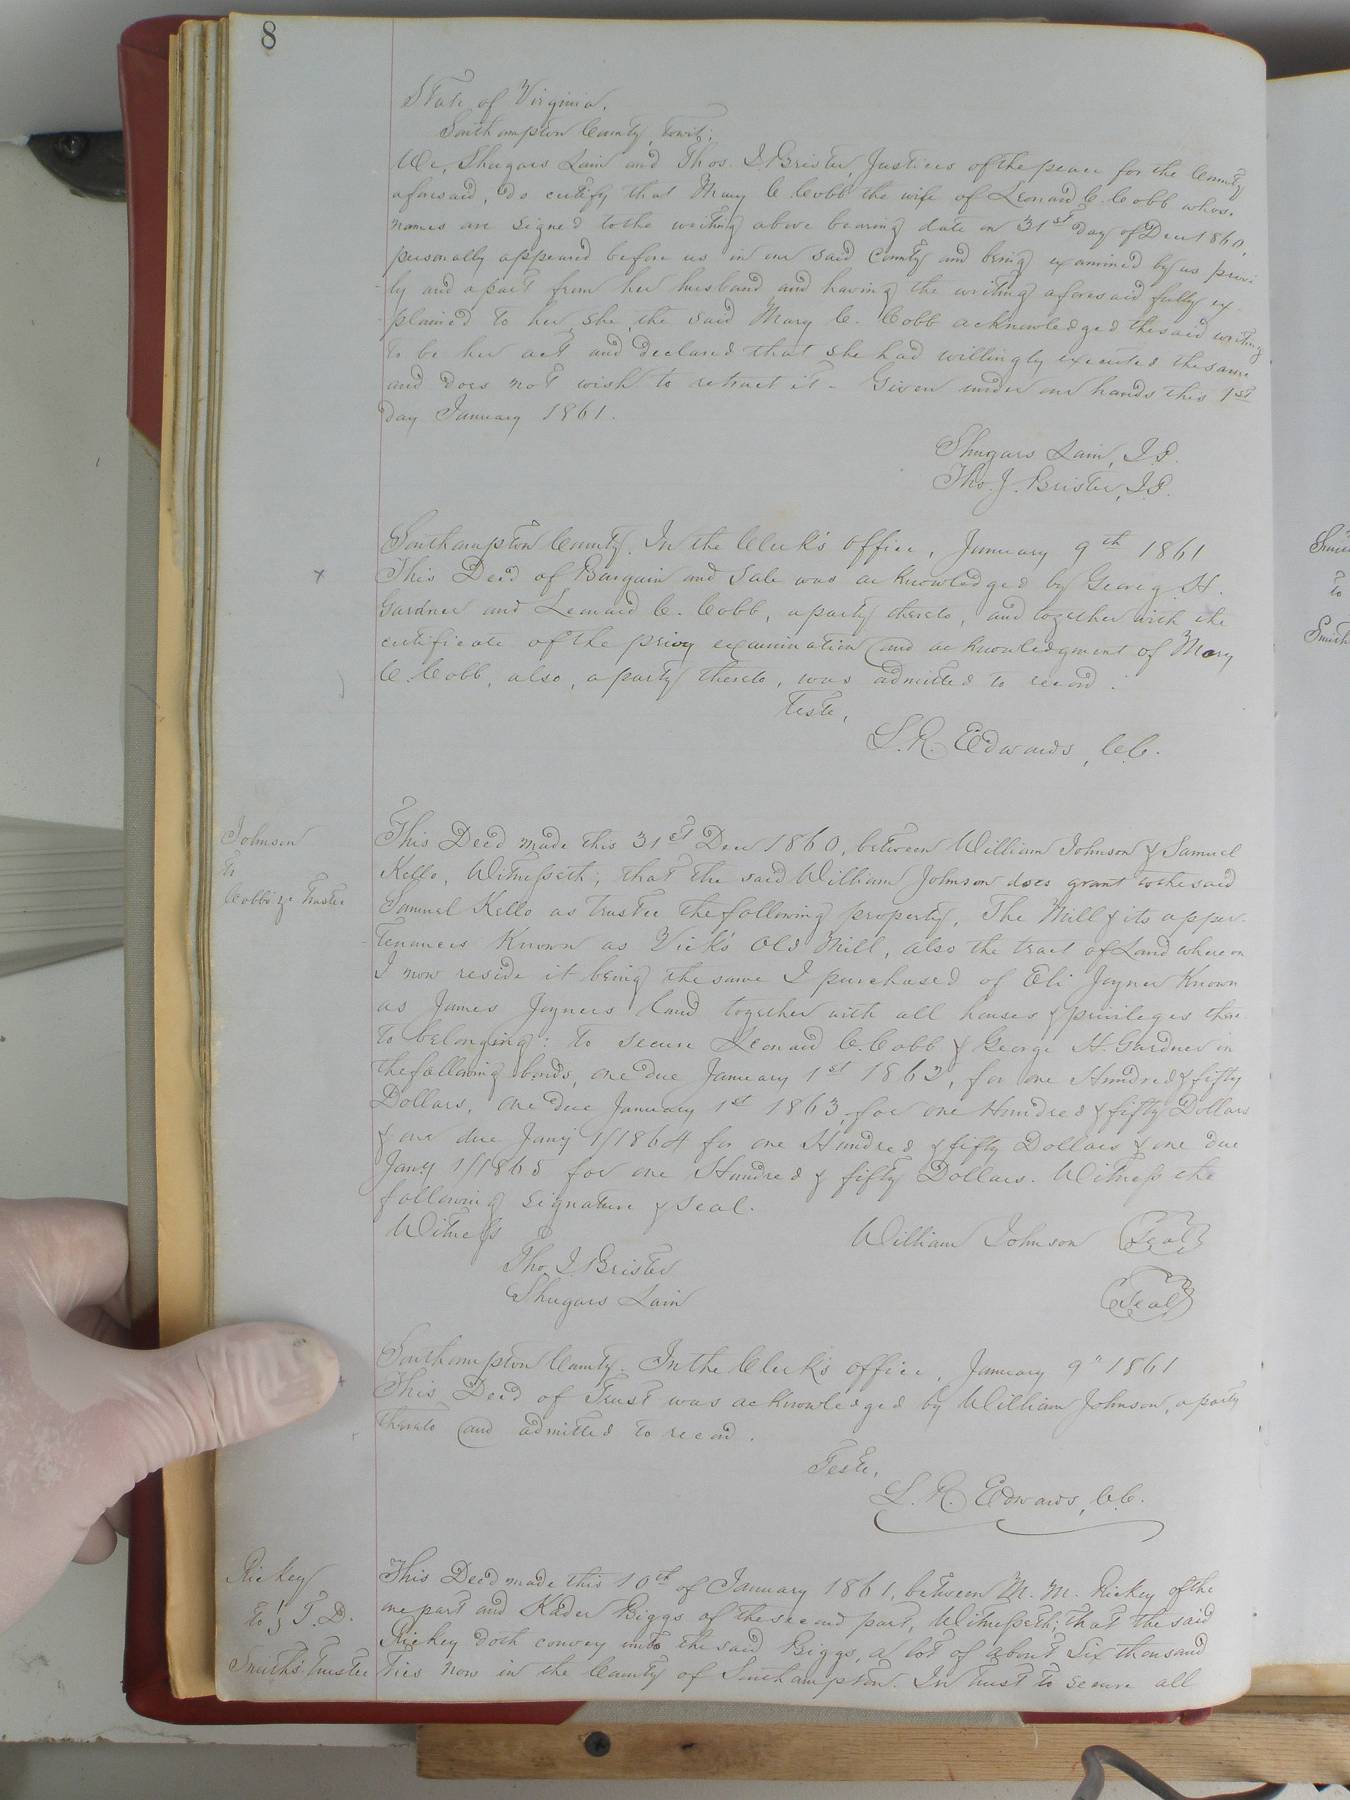 8
State of Virginia.
Southampton County, towit:
We, Shugars Lain and Thos. J. Brister, Justices of the peace for the County
aforesaid, do certify that Mary C. Cobb the wife of Leonard C. Cobb whose
names are signed to the writing above bearing date on 31st day of Decr 1860,
personally appeared before us in our said County and being examined by us privi-
ly and apart from her husband and having the writing aforesaid fully ex-
plained to her, she, the said Mary C. Cobb acknowledged the said writing
to be her act and declared that she had willingly executed the same
and does not wish to retract it - Given under our hands this 1st
day January 1861.
Shugars Lain, J.P.
Tho. J. Brister, J.P.
Southampton County. In the Clerk's office, January 9th 1861
This Deed of Bargain and Sale was acknowledged by Georg H.
Gardner and Leonard C. Cobb, a party thereto, and together with the
certificate of the privy examination and acknowledgment of Mary
C. Cobb, also, a party thereto, was admitted to record.
Teste,
L. R. Edwards, C.C.
Johnson
To
Cobb &c Trustee
This Deed made this 31st Decr 1860, between William Johnson & Samuel
Kello, Witnesseth; that the said William Johnson does grant to the said
Samuel Kello as trustee the following property, The Mill & its apper-
tenances Known as Vick's Old Mill, also the tract of Land whereon
I now reside it being the same I purchased of Eli Joyner Known
as James Joyners land together with all houses & privileges there
to belonging: to secure Leonard C. Cobb & George H. Gardner in
the following bonds, one due January 1st 1862, for one Hundred & fifty
Dollars, one due January 1st 1863, for one Hundred & fifty Dollars
& one due Jany 1/1864 for one Hundred & fifty Dollars & one due
Jany 1/1865 for one Hundred & fifty Dollars. Witness the
following signature & seal.
Witness
William Johnson Seal
Tho. J. Brister
Shugars Lain
Seal
Southampton County. In the Clerk's office, January 9" 1861
This Deed of Trust was acknowledged by William Johnson, a party
thereto and admitted to record.
Teste,
L. R. Edwards, C.C.
Rickey
to } T. D.
Smith's Trustee
This Deed made this 10th of January 1861, between M. M. Rickey of the
one part and Kader Biggs of the second part, Witnesseth; that the said
Rickey doth convey unto the said Biggs, a lot of about Six thousand
Ties now in the County of Southampton. In trust to secure all
to